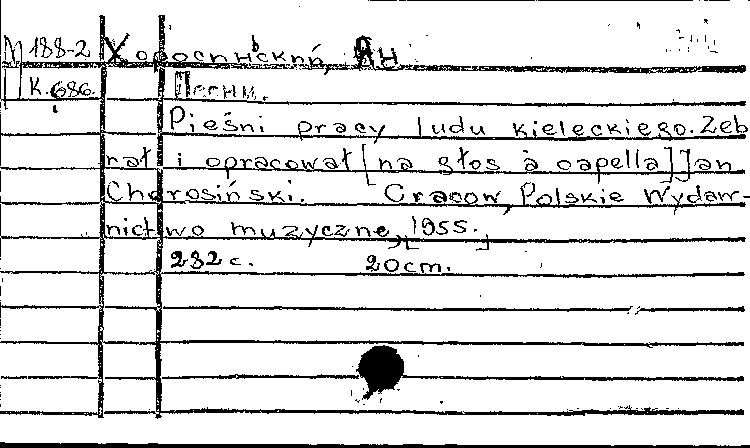 М 188-2 Хоросиньский, Ян
К.686. Песни.
Pieśni pracy ludu kieleckiego. Zeb
rał i opracował [na głos à capella] Jan
Chorosiński. Cracow, Polskie Wydaw-
nictwo muzyczne, [1955.]
232 с. 20cm.